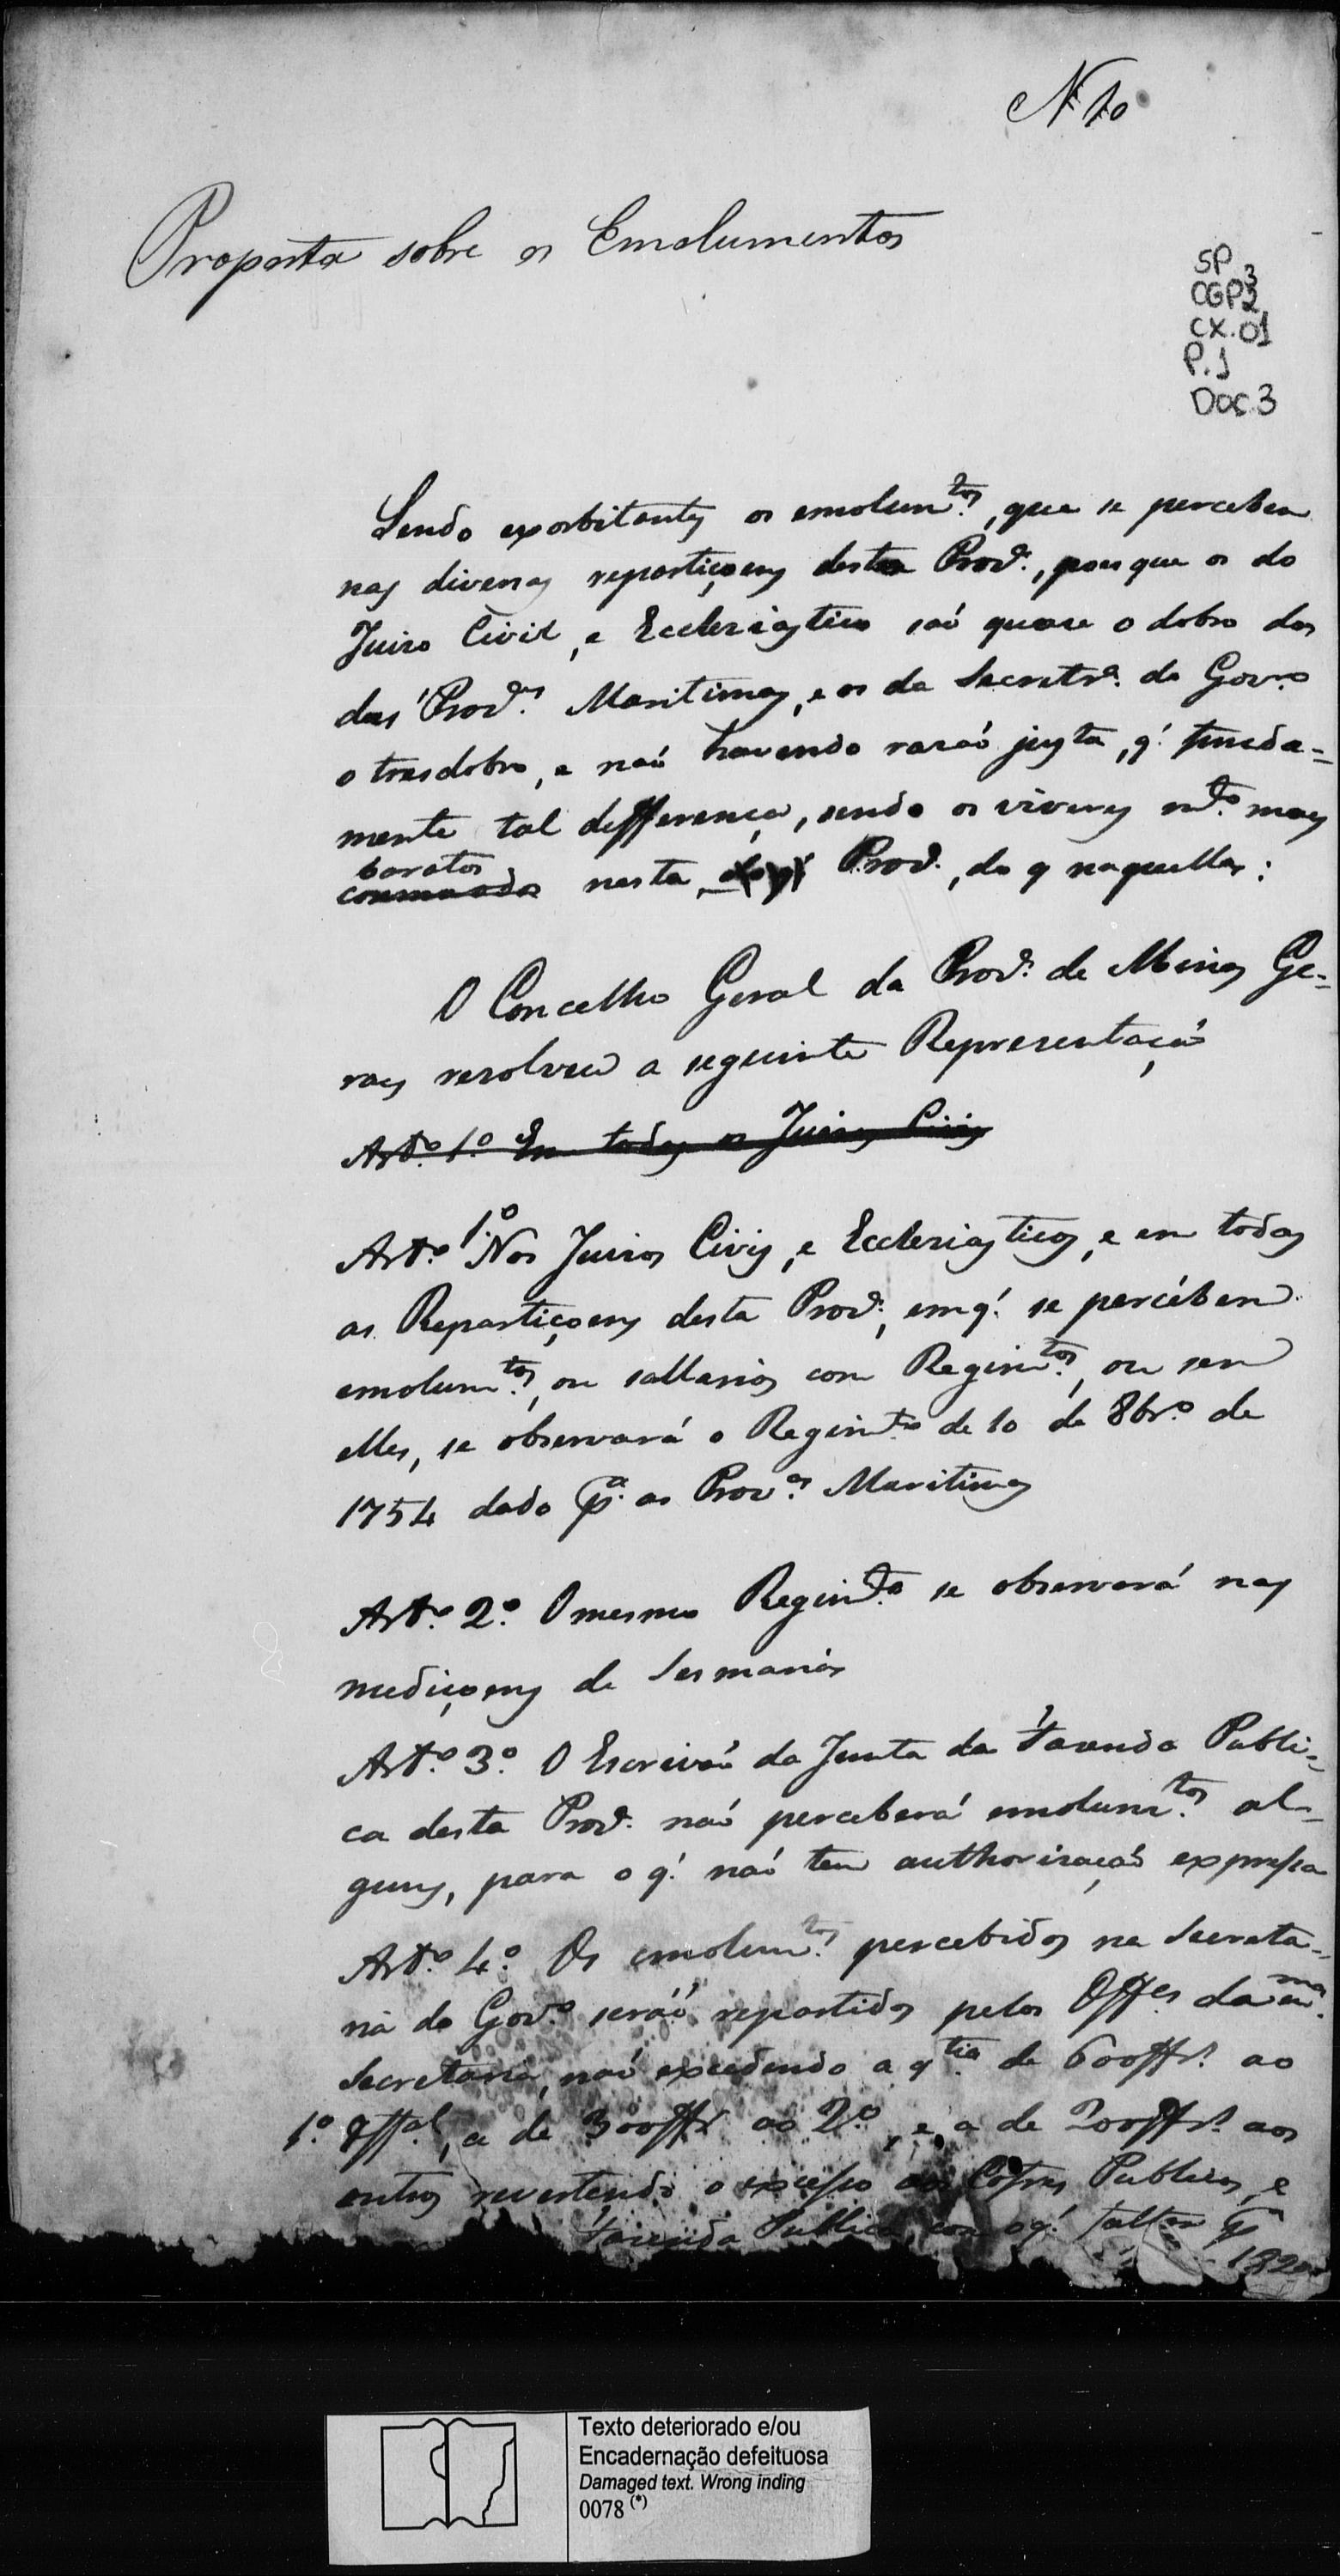 N 10
Proposta sobre os Emolumentos
SP
CGP3
2
CX.01
P.1
Doc.3
Sendo exorbitantes os emolum.tos, que se percebem
nas diversas repartiçoens desta Prov.a, pois que os do
Juizo Civil, e Ecclesiastico saõ quase o dobro dos
das Prov.as Maritimas, e os da Secretr.a do Gov.no
o tresdobro, e naõ havendo razaõ justa, q' funda-
mente tal differença, sendo os viveres m.to mais
baratos
nesta Prov.a, do q naquellas:
O Concelho Geral da Prov.a de Minas Ge-
raes resolveu a seguinte Representaçaõ
Art.o 1.o Em todos os Juizos Civis
Art.o 1.o Nos Juizos Civis, e Ecclesiasticos, e em todas
as Repartiçoens desta Prov.a, em q' se percébem
emolum.tos, ou sallarios com Regim.tos, ou sem
elles, se observará o Regim.to de 10 de 8br.o de
1754 dado p.a as Prov.as Maritimas
Art.o 2.o O mesmo Regim.to se observará nas
mediçoens de Sesmarias
Art.o 3.o O Escrivaõ da Junta da Fazenda Publi-
ca desta Prov.a naõ perceberá emolum.tos al-
guns, para o q' naõ tem authorizaçaõ expressa
Art.o 4.o Os emolum.tos percebidos na Secreta-
ria do Gov.o seraõ repartidos pelos Off.es da m.ma
Secretaria, naõ excedendo a q.tia de 600$r.s ao
1.o Off.al, a de 300$r.s ao 2.o, e a de 200$r.s aos
outros revertendo o excesso aos Cofres Publicos, e
Fazenda Publica com o q' faltar p.a
Texto deteriorado e/ou
Encadernação defeituosa
Damaged text. Wrong inding
0078 (*)